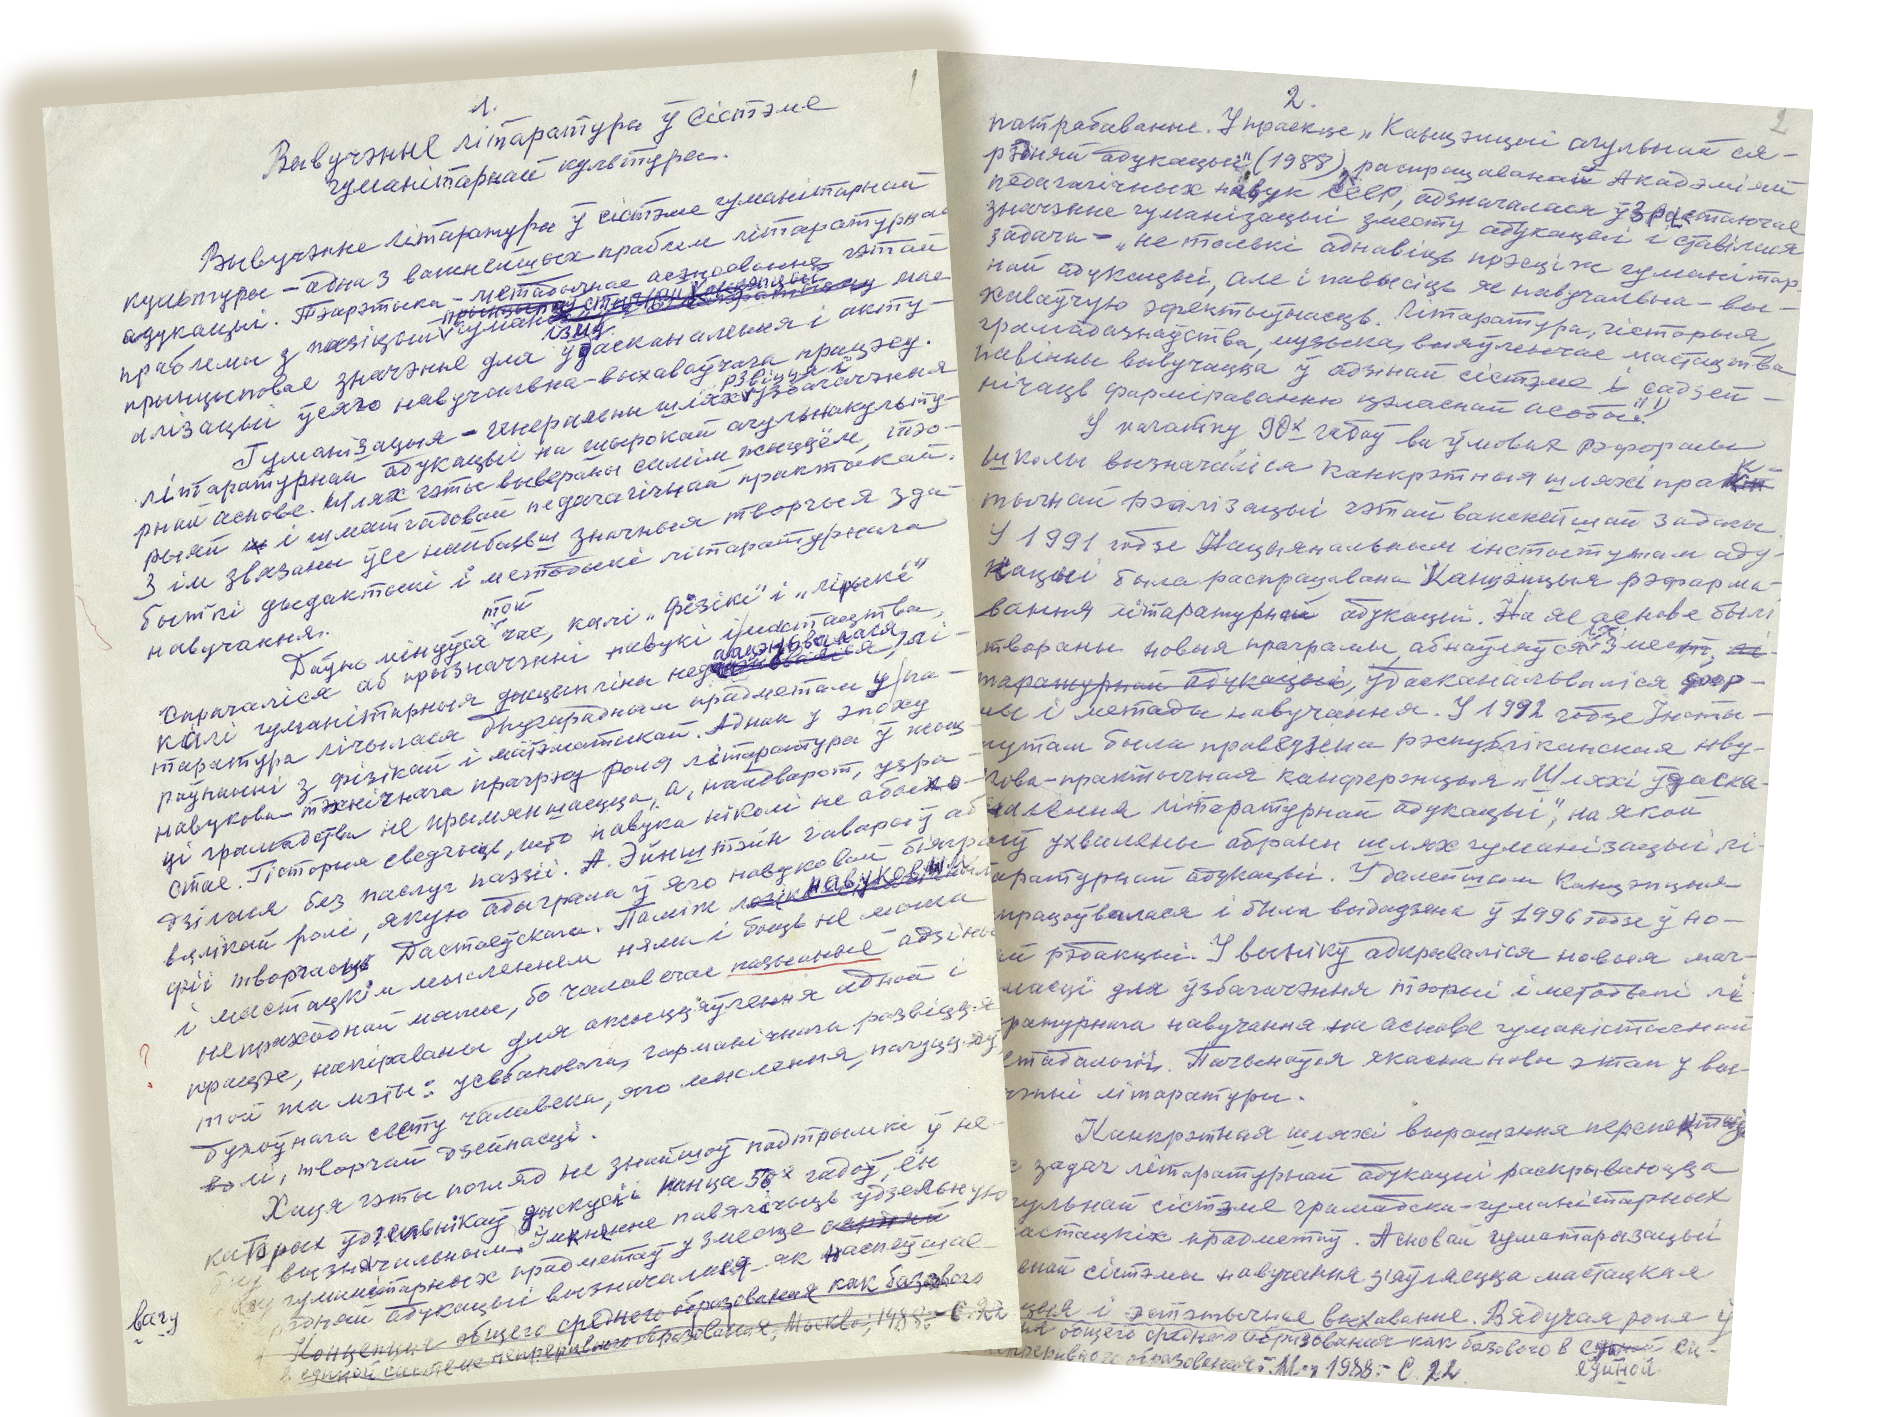 1.
1
Вывучэнне літаратуры ў сістэме
гуманітарнай культуры.
Вывучэнне літаратуры ў сістэме гуманітарнай
культуры – адна з важнейшых праблем літаратурнай
адукацыі. Тэарэтыка-метадычнае асэнсаванне гэтай
праблемы з пазіцыі гуманізму мае
прынцыповае значэнне для ўдасканалення і акту-
алізацыі ўсяго навучальна-выхаваўчага працэсу.
Гуманізацыя – генеральны шлях развіцця і ўзбагачэння
літаратурнай адукацыі на шырокай агульнакульту-
рнай аснове. Шлях гэты вывераны самім жыццём, тэо-
рыяй і шматгадовай педагагічнай практыкай.
З ім звязаны ўсе найбольш значныя творчыя зда-
быткі дыдактыкі і методыкі літаратурнага
навучання.
Даўно мінуўся той час, калі „фізікі" і „лірыкі"
спрачаліся аб прызначэнні навукі і мастацтва,
калі гуманітарныя дысцыпліны недаацэньваліся, лі-
таратура лічылася другарадным прадметам у па-
раўнанні з фізікай і матэматыкай. Аднак у эпоху
навукова-тэхнічнага прагрэсу роля літаратуры ў жыц-
ці грамадства не прымяншаецца, а, наадварот, узра-
стае. Гісторыя сведчыць, што навука ніколі не абыхо-
дзілася без паслуг паэзіі. А. Эйнштэйн гаварыў аб
вялікай ролі, якую адыграла ў яго навуковай біягра-
фіі творчасць Дастаеўскага. Паміж навуковым
і мастацкім мысленнем няма і быць не можа
непраходнай мяжы, бо чалавечае пазнанне адзіны
працэс, накіраваны для ажыццяўлення адной і
той жа мэты: усебаковага, гарманічнага развіцця
духоўнага свету чалавека, яго мыслення, пачуццяў,
волі, творчай дзейнасці.
Хаця гэты погляд не знайшоў падтрымкі ў не-
каторых ўдзельнікаў дыскусіі канца 50х гадоў, ён
быў вызначальным. Імкненне павялічыць ўдзельную
вагу гуманітарных прадметаў у змесце
адукацыі вызначалася як наспеўшае
вагу
Концепция общего среднего образования как базового
в единой системе непрерывного образования, Москва, 1988. – С. 22
2.
2
патрабаванне. У праекце „Канцэпцыі агульнай ся-
рэдняй адукацыі" (1988), распрацаванай Акадэміяй
педагагічных навук СССР, адзначалася ўзрастаючае
значэнне гуманізацыі зместу адукацыі і ставілася
задача – „не толькі аднавіць прэстіж гуманітар-
най адукацыі, але і павысіць яе навучальна-вы-
хаваўчую эфектыўнасць. Літаратура, гісторыя,
грамадазнаўства, музыка, выяўленчае мастацтва
павінны вывучацца ў адзінай сістэме і садзей-
нічаць фарміраванню цэласнай асобы."
У пачатку 90х гадоў ва ўмовах рэформы
школы вызначаліся канкрэтныя шляхі прак-
тычнай рэалізацыі гэтай важнейшай задачы.
У 1991 годзе Нацыянальным інстытутам аду-
кацыі была распрацавана Канцэпцыя рэфарма-
вання літаратурнай адукацыі. На яе аснове былі
створаны новыя праграмы, абнаўляўся змест,
ўдасканальваліся фор-
мы і метады навучання. У 1992 годзе Інсты-
тутам была праведзена рэспубліканская наву-
кова-практычная канферэнцыя „Шляхі ўдаска-
налення літаратурнай адукацыі", на якой
быў ухвалены абраны шлях гуманізацыі лі-
таратурнай адукацыі. У далейшым Канцэпцыя
працоўвалася і была выдадзена ў 1996 годзе ў но-
вай рэдакцыі. У выніку адкрываліся новыя маг-
масці для ўзбагачэння тэорыі і методыкі лі-
таратурнага навучання на аснове гуманістычнай
метадалогіі. Пачынаўся якасна новы этап у вы-
вучэнні літаратуры.
Канкрэтныя шляхі вырашэння
задач літаратурнай адукацыі раскрываюцца
агульнай сістэме грамадска-гуманітарных
мастацкіх прадметаў. Асновай гуманітарызацыі
сістэмы навучання з'яўляецца мастацкая
і эстэтычнае выхаванне. Вядучая роля ў
общего среднего образования как базового в единой си-
непрерывного образования. М., 1988. – С. 22.